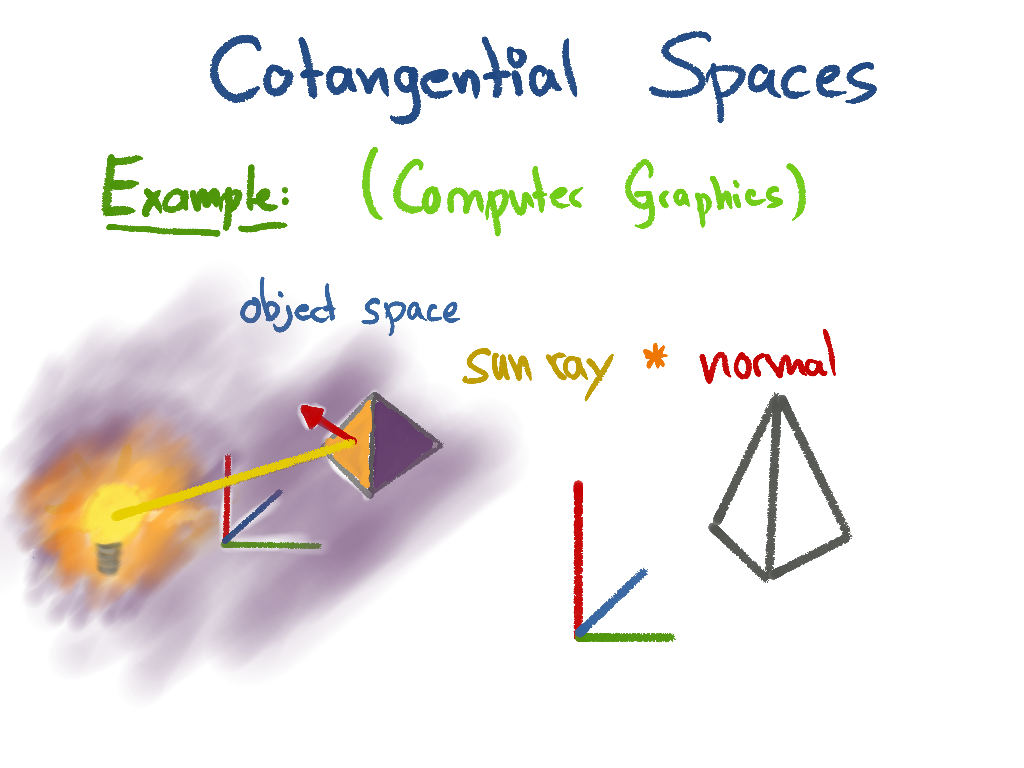 Cotangential Spaces
Example: (Computer Graphics)
object space
sun ray * normal